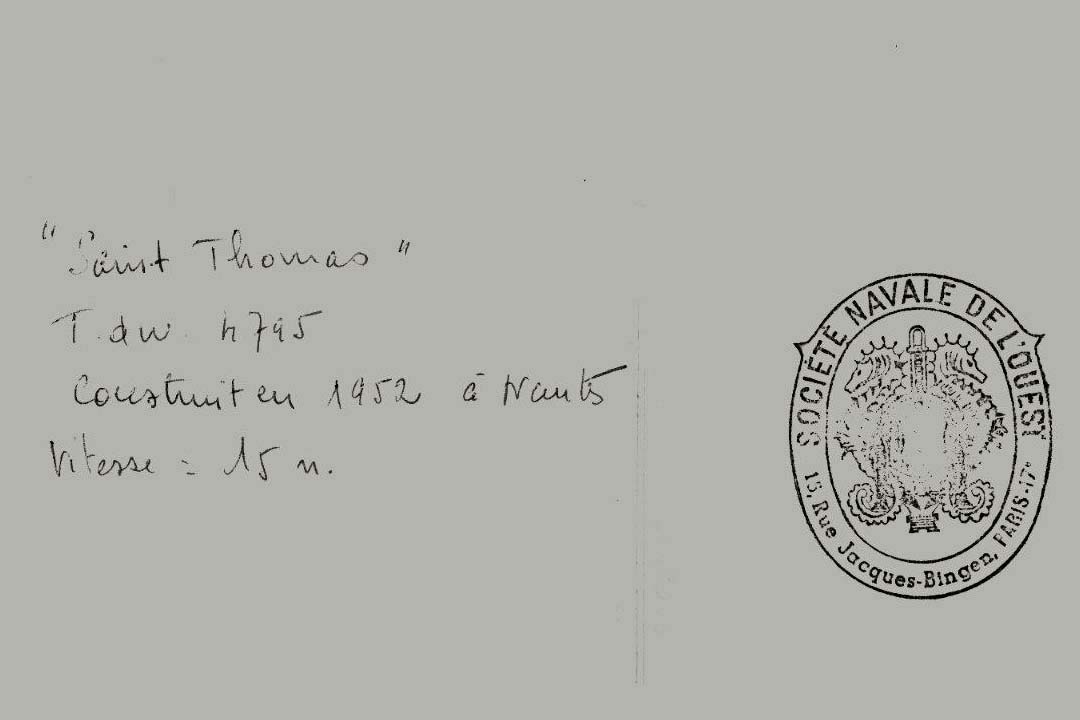 "Saint Thomas"
T. dw. 4795
Construit en 1952 à Nantes
Vitesse = 15 n.
SOCIÉTÉ NAVALE DE L'OUEST
15, Rue Jacques-Bingen, PARIS-17e